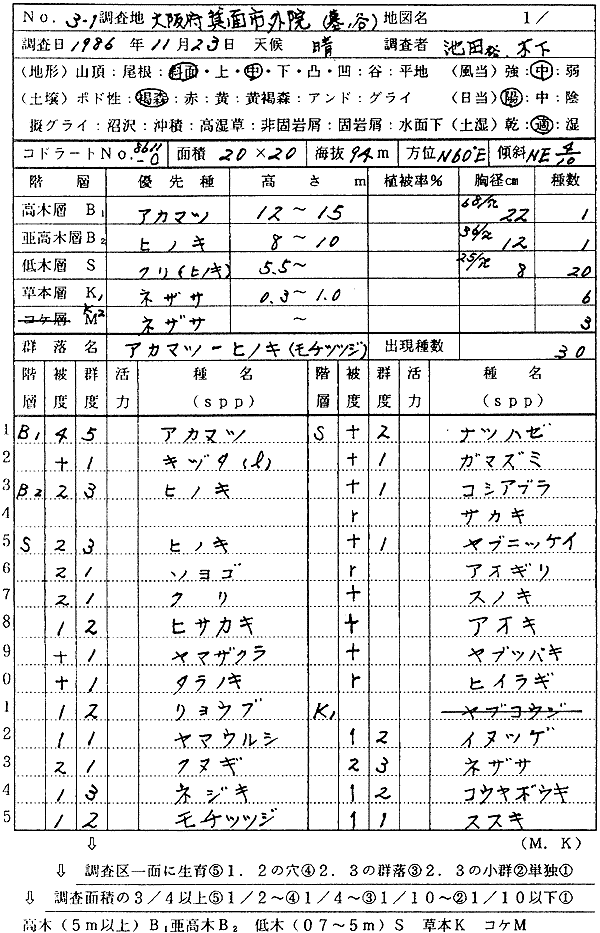 No. 3-1 調査地 大阪府箕面市外院(墓、谷) 地図名 1/
調査日 1986 年 11 月 23 日 天候 晴 調査者 池田裕、木下
(地形) 山頂:尾根:斜面・上・中・下・凸・凹:谷:平地 (風当) 強:中:弱
(土壌) ポド性:褐森:赤:黄:黄褐森:アンド:グライ (日当) 陽:中:陰
擬グライ:沼沢:沖積:高湿草:非固岩屑:固岩屑:水面下 (土湿) 乾:適:湿
コドラートNo. 8611-0 面積 20×20 海抜 94 m 方位 N60°E 傾斜 NE 4/10
階 層 優先種 高 さ m 植被率% 胸径cm 種数
高木層 B₁ アカマツ 12〜15 68/π 22 1
亜高木層 B₂ ヒノキ 8〜10 36/π 12 1
低木層 S クリ(ヒノキ) 5.5〜 25/π 8 20
草本層 K₁ ネザサ 0.3〜1.0 6
コケ層 M K₂ ネザサ 〜 3
群 落 名 アカマツーヒノキ(モチツツジ) 出現種数 30
階層 被度 群度 活力 種 名 (spp) 階層 被度 群度 活力 種 名 (spp)
1 B₁ 4 5 アカマツ S + 2 ナツハゼ
2 + 1 キヅタ(l) + 1 ガマズミ
3 B₂ 2 3 ヒノキ + 1 コシアブラ
4 r サカキ
5 S 2 3 ヒノキ + 1 ヤブニッケイ
6 2 1 ソヨゴ r アオギリ
7 2 1 クリ + スノキ
8 1 2 ヒサカキ + アオキ
9 + 1 ヤマザクラ + ヤブツバキ
0 + 1 タラノキ r ヒイラギ
1 1 2 リョウブ K₁ ヤブコウジ
2 1 1 ヤマウルシ 1 2 イヌツゲ
3 2 1 クヌギ 2 3 ネザサ
4 1 3 ネジキ 1 2 コウヤボウキ
5 1 2 モチツツジ 1 1 ススキ
⇩ (M. K)
⇩ 調査区一面に生育⑤1.2の穴④2.3の群落③2.3の小群②単独①
⇩ 調査面積の3/4以上⑤1/2〜④1/4〜③1/10〜②1/10以下①
高木(5m以上)B₁亜高木B₂ 低木(07〜5m)S 草本K コケM